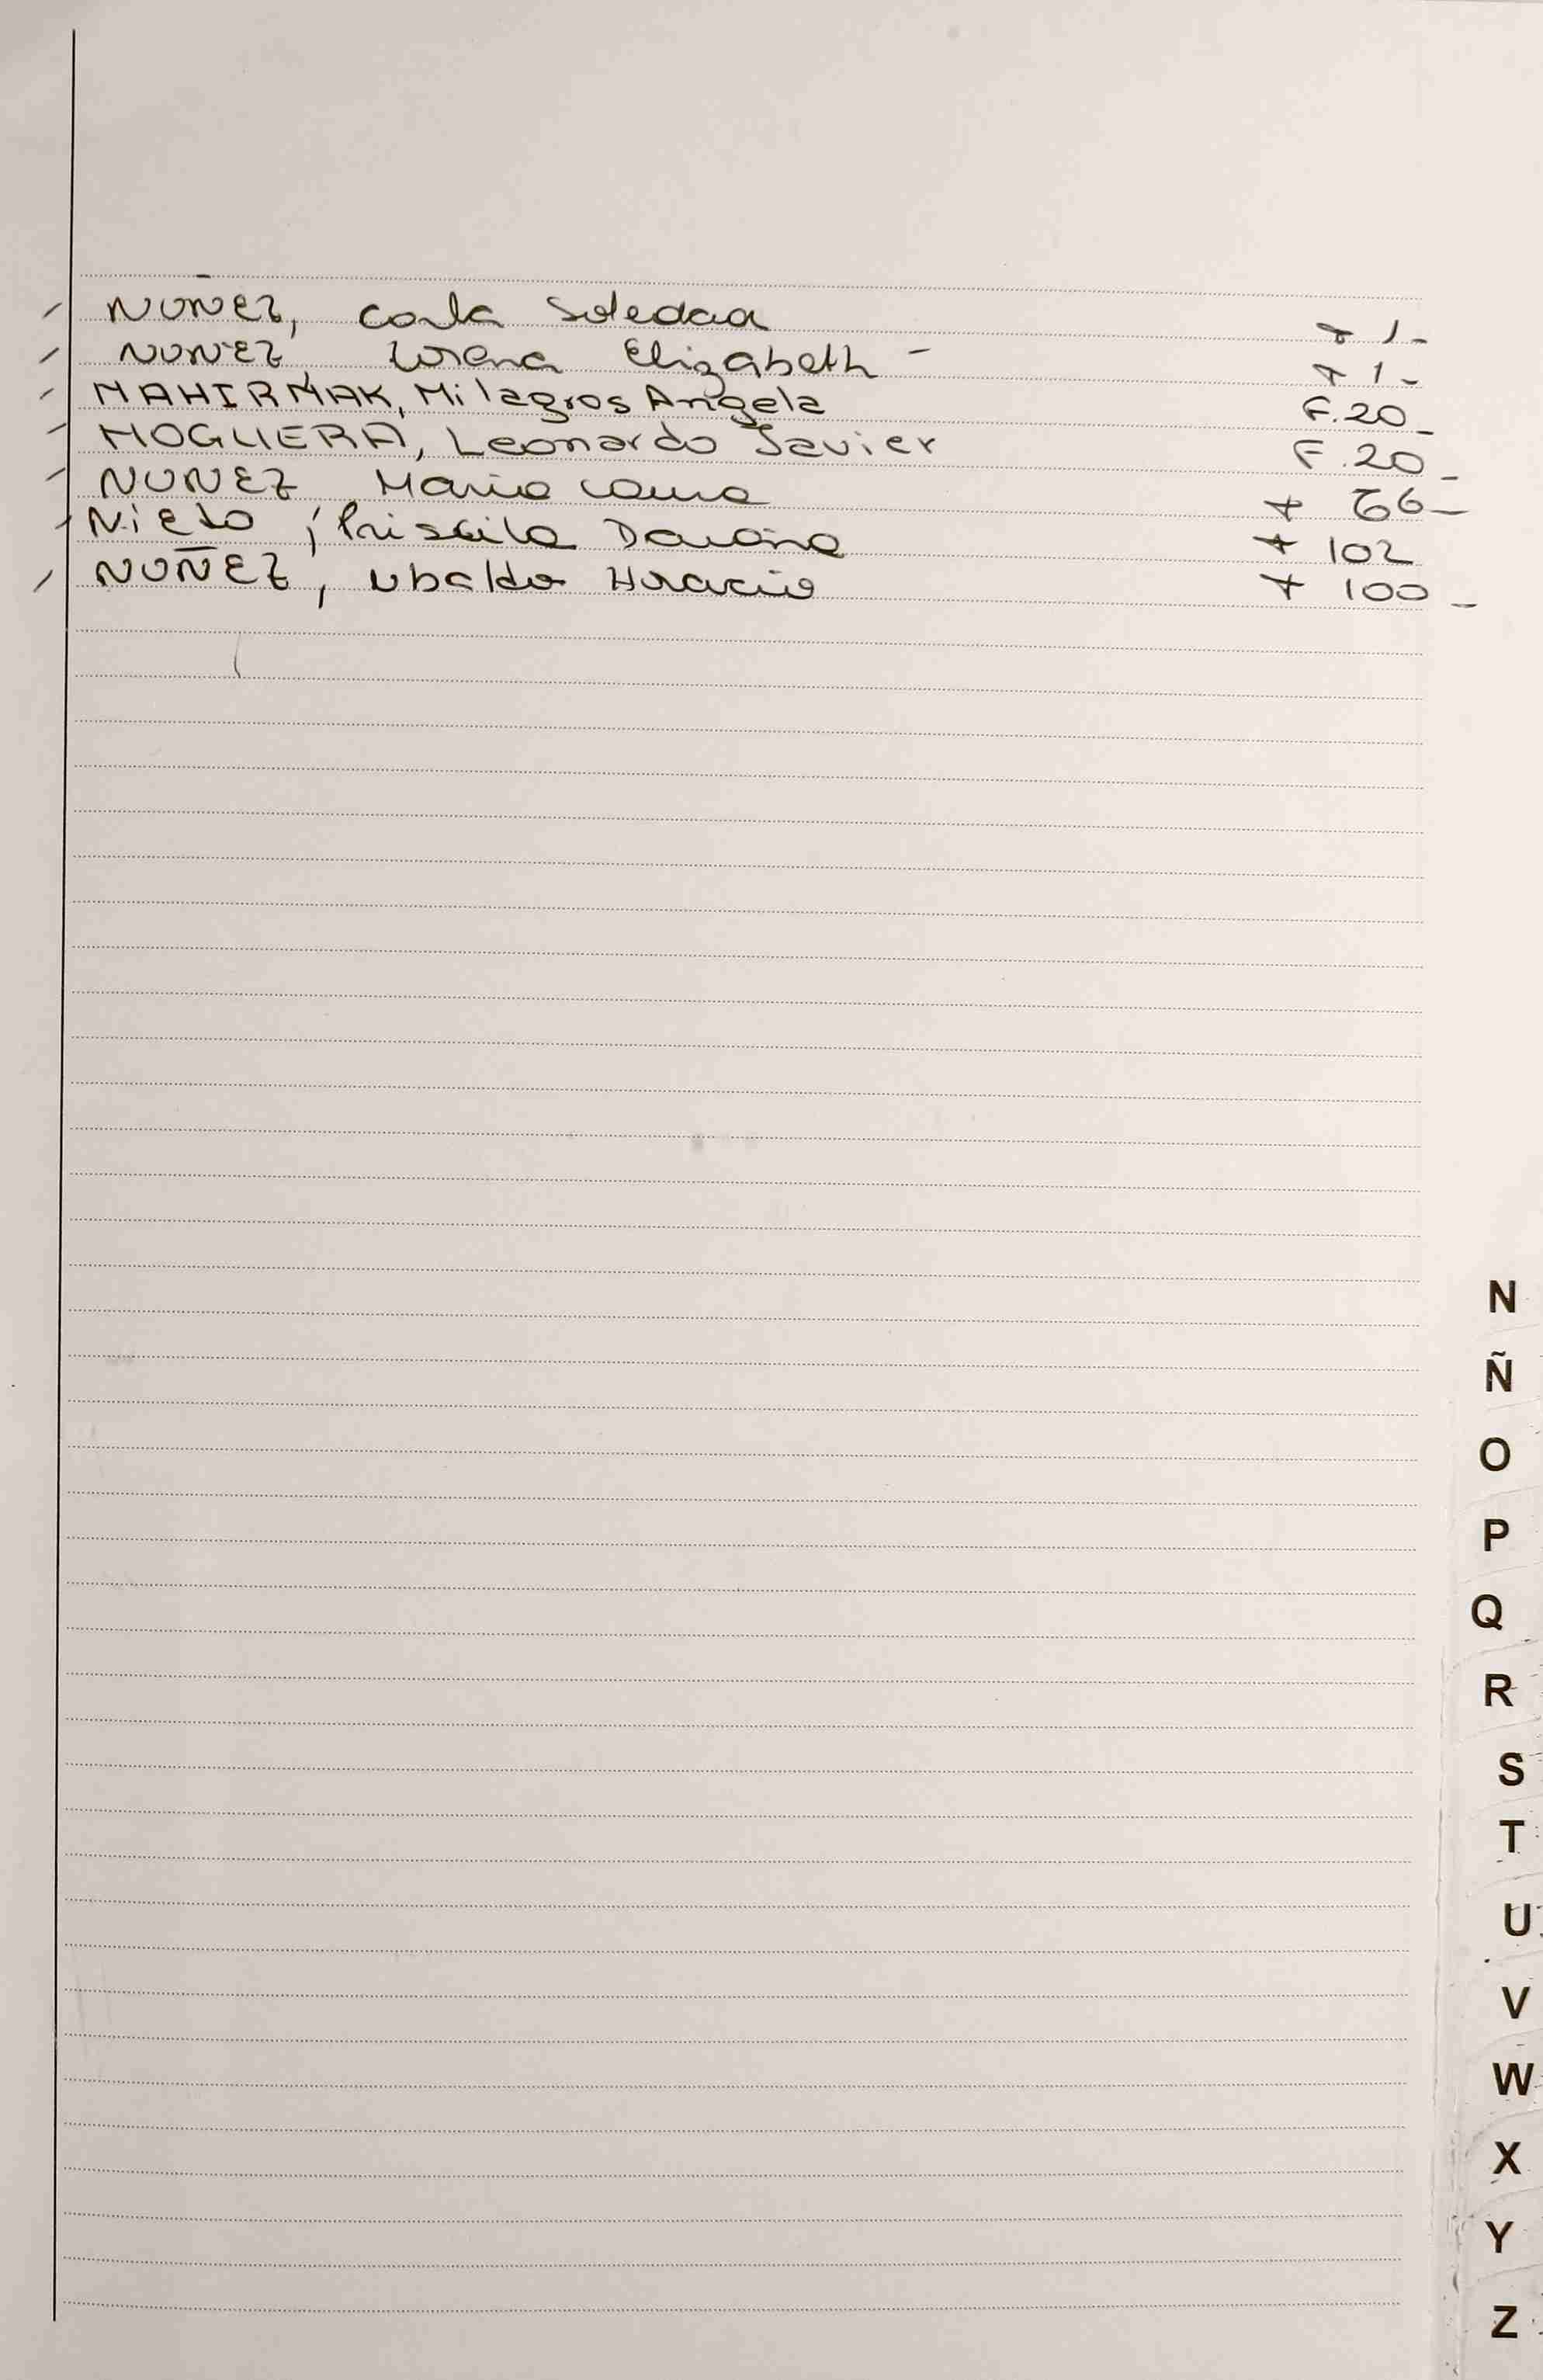 NUÑEZ, Carla Soledad F 1-
NUÑEZ, Lorena Elizabeth - F 1-
NAHIRÑAK, Milagros Angela F.20-
NOGUERA, Leonardo Javier F.20-
NUNEZ Maria Laura F 66-
Nieto, Priscila Daiana F 102
NUÑEZ, Ubaldo Horacio F 100-
N
Ñ
O
P
Q
R
S
T
U
V
W
X
Y
Z